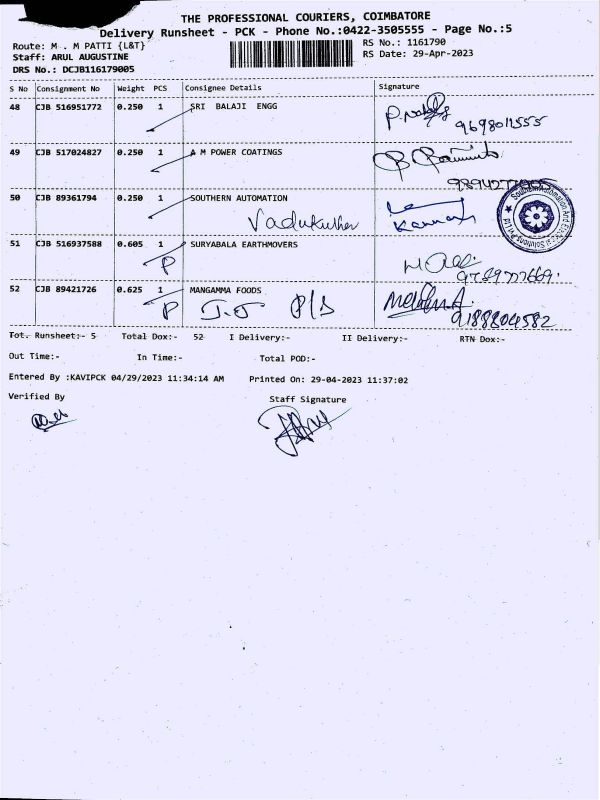 THE PROFESSIONAL COURIERS, COIMBATORE
Delivery Runsheet - PCK - Phone No.:0422-3505555 - Page No.:5
Route: M . M PATTI {L&T} RS No.: 1161790
Staff: ARUL AUGUSTINE RS Date: 29-Apr-2023
DRS No.: DCJB116179005
S No Consignment No Weight PCS Consignee Details Signature
48 CJB 516951772 0.250 1 SRI BALAJI ENGG
49 CJB 517024827 0.250 1 A M POWER COATINGS
50 CJB 89361794 0.250 1 SOUTHERN AUTOMATION
Kannan
51 CJB 516937588 0.605 1 SURYABALA EARTHMOVERS
P
52 CJB 89421726 0.625 1 MANGAMMA FOODS
P
9188804582
Tot. Runsheet:- 5 Total Dox:- 52 I Delivery:- II Delivery:- RTN Dox:-
Out Time:- In Time:- Total POD:-
Entered By :KAVIPCK 04/29/2023 11:34:14 AM Printed On: 29-04-2023 11:37:02
Verified By Staff Signature